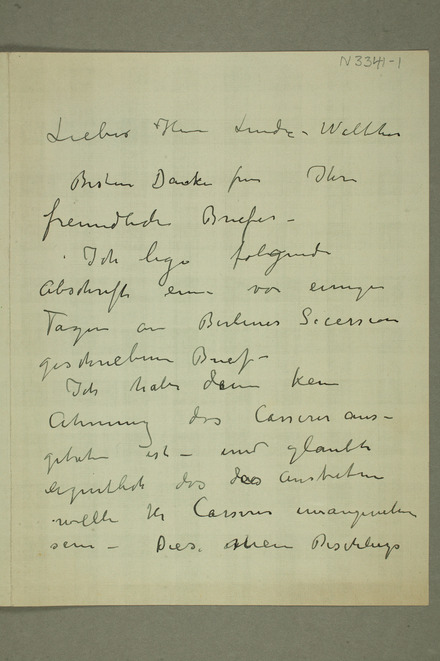 N 3341-1
Lieber Herr Linde-Walther
Besten Danke for Ihre
freundliche Briefer –
Ich lege folgende
Abschrift eine vor einigen
Tagen an Berliner Secession
geschriebene Brief –
Ich habe kein
Ahnung das Cassirer aus-
gebeten ist – und glaubte
eigentlich das das austreten
wollte Hr Cassirer unangenehm
sein – Dies. mein Beschluss